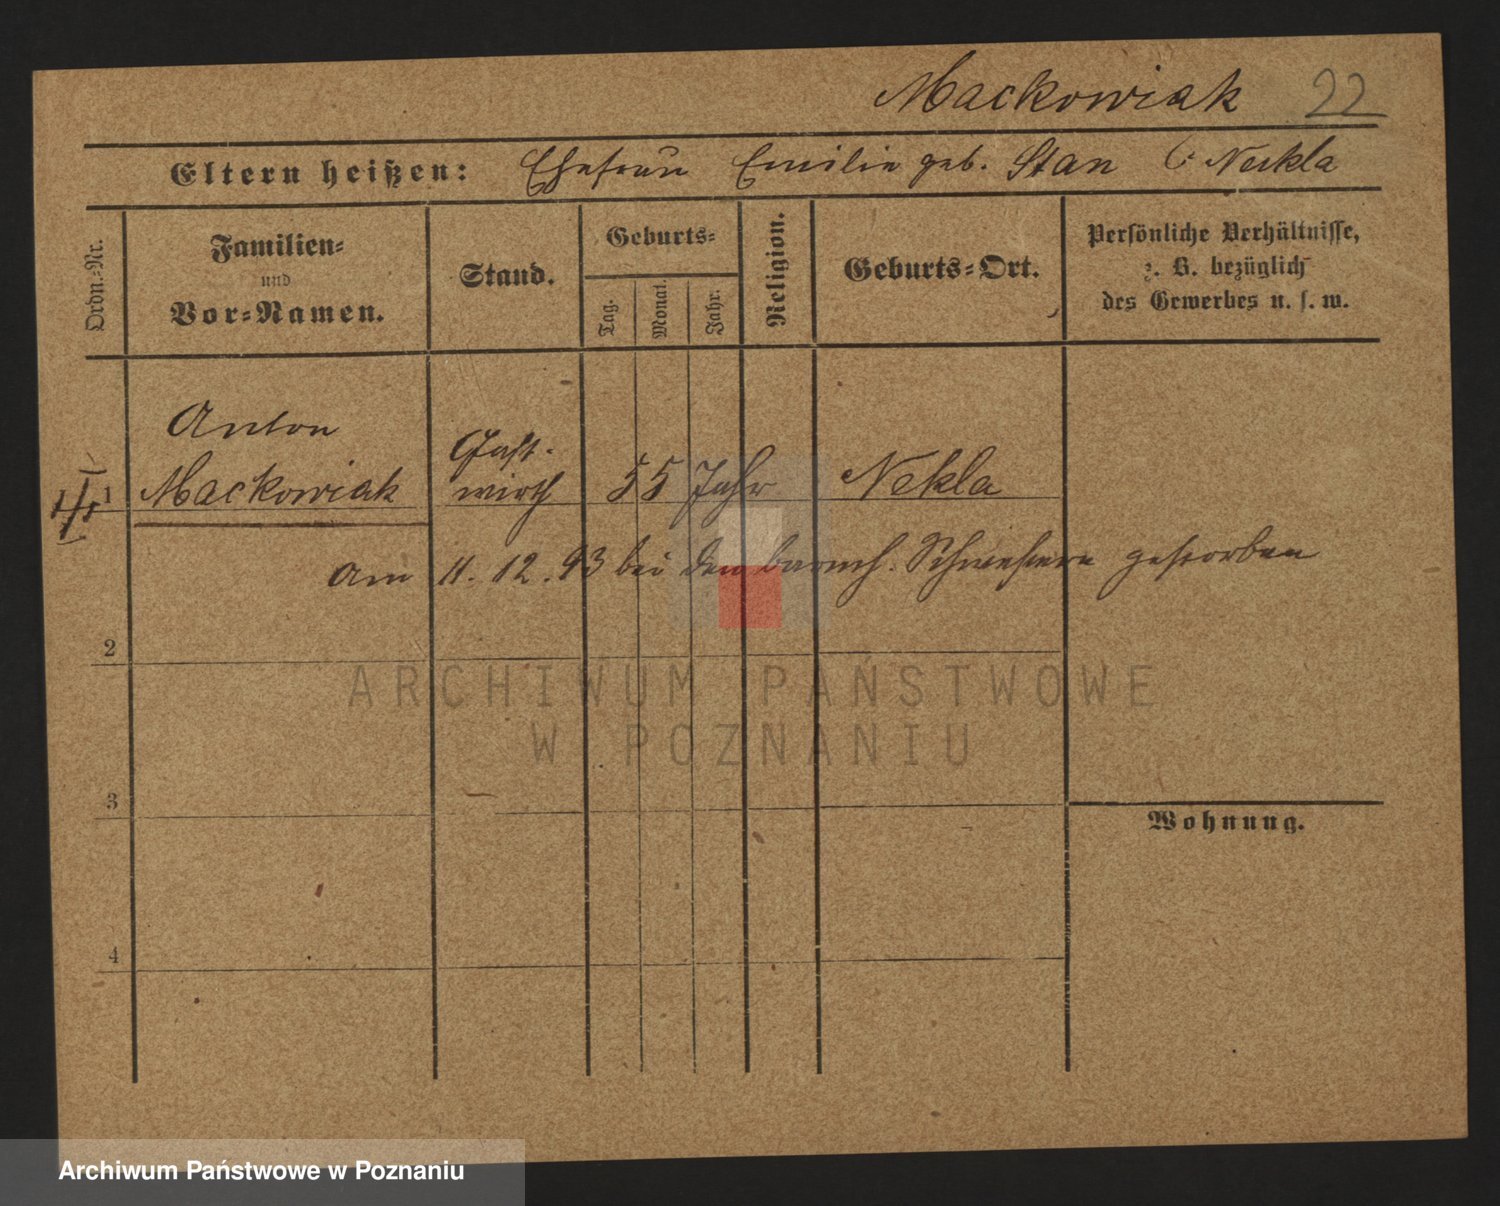 Mackowiak 22
Eltern heißen: Ehefrau Emilie geb. Stan Nekla
Ordn.-Nr.
Familien-
und
Vor-Namen.
Stand.
Geburts-
Tag.
Monat.
Jahr.
Religion.
Geburts-Ort.
Persönliche Verhältnisse,
z. B. bezüglich
des Gewerbes u. s. w.
Anton
Gast-
1 Mackowiak wirth 55 Jahr Nekla
Am 11. 12. 93 bei den barmh. Schwestern gestorben
2
ARCHIWUM PAŃSTWOWE
W POZNANIU
3
Wohnung.
4
Archiwum Państwowe w Poznaniu